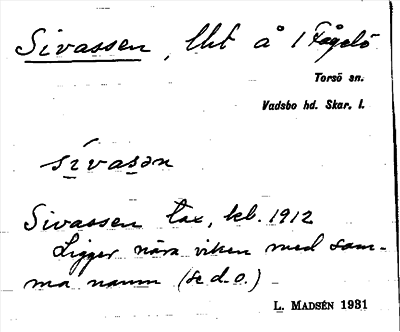 Sivassen, lht å 1 Fågelö
Torsö sn.
Vadsbo hd. Skar. l.
sívasən
Sivassen tax, kb. 1912
Ligger nära viken med sam-
ma namn (se d. o.)
L. MADSÉN 1931